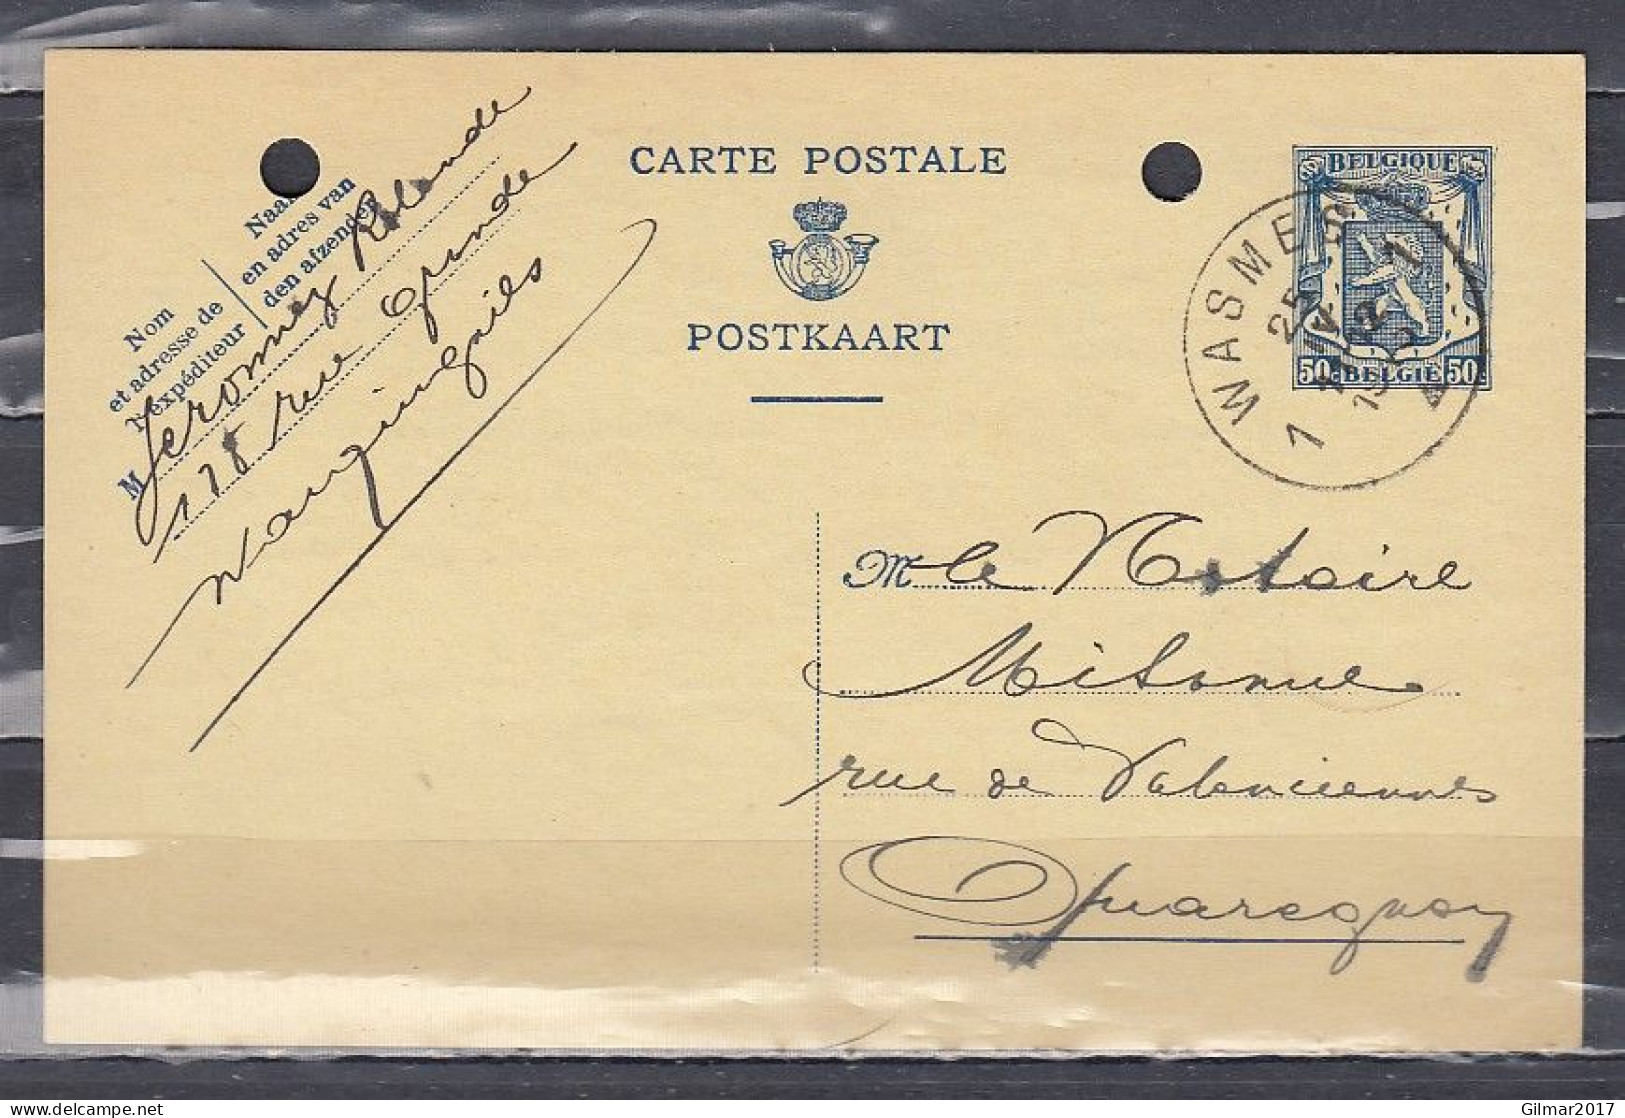 CARTE POSTALE
POSTKAART
BELGIQUE
50c BELGIË 50c
WASMES
25
1 1
Naam
en adres van
den afzender
Nom
et adresse de
l'expéditeur
M Jeromez Rolande
178 rue Grande
Warquignies
Mr le Notaire
rue de Valenciennes
Quaregnon
delcampe.net
Gilmar2017